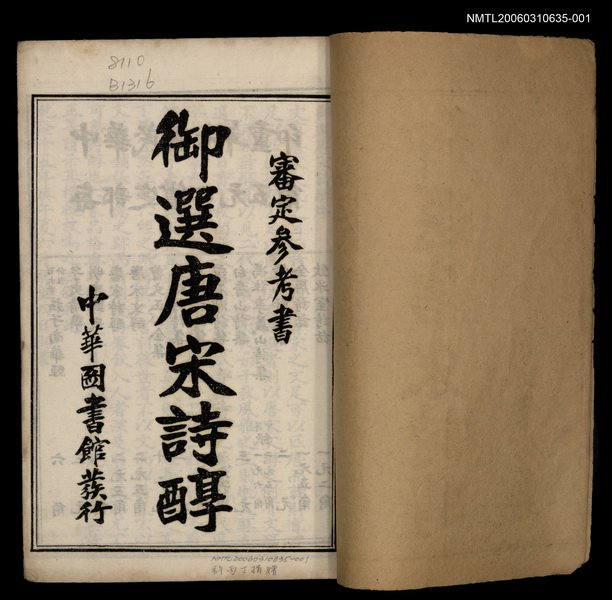 NMTL20060310635-001
8110
B1316
審定參考書
御選唐宋詩醇
中華圖書館發行
NMTL20060310635-001